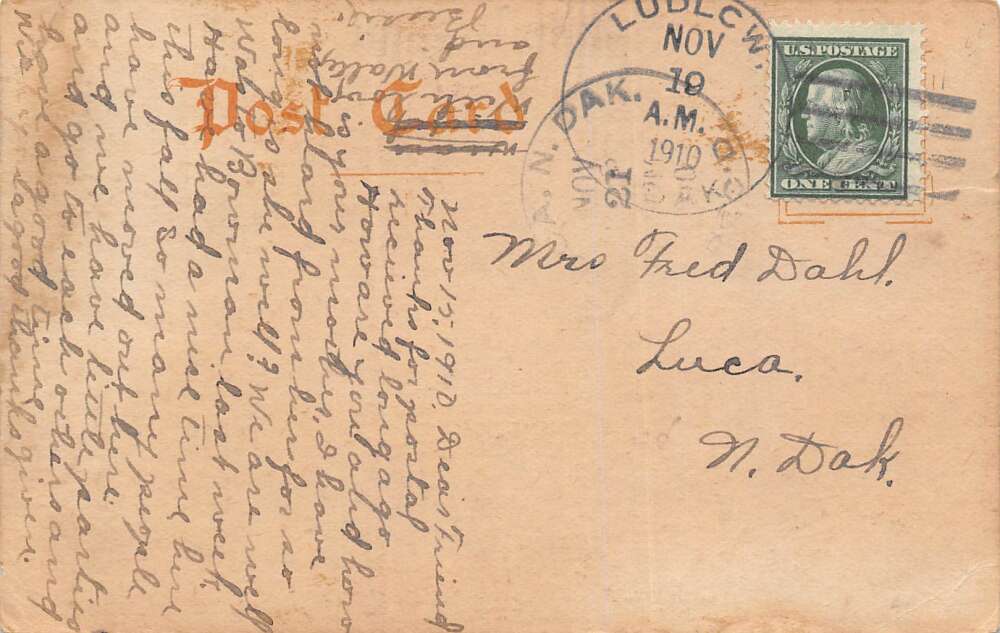 Post Card
LUDLOW.
NOV
19
A.M.
1910
N. DAK.
NOV
21
1910
U.S. POSTAGE
ONE CENT
Mrs Fred Dahl.
Luca.
N. Dak.
Nov 15, 1910. Dear Friend
Thanks for postal
recieved long ago
How are you and how
is your mother, I have
not heard from her for so
long. Is she well? We are well
Was to Bowman last week
Have had a nice time here
this fall so many people
have moved out here.
and we have little parties
and go to each others and
have a good time
Wish a good thanksgiven.
from Wally
and
Bessie.